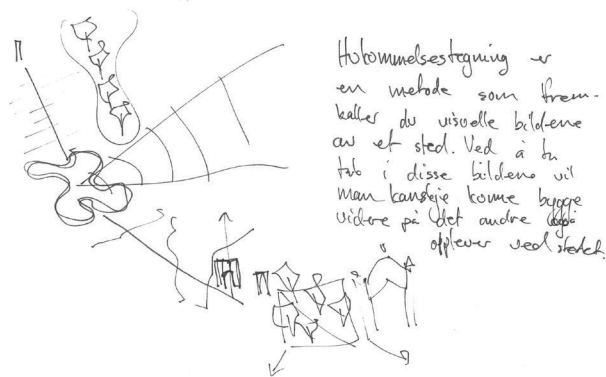 Hukommelsestegning er
en metode som frem-
kaller de visuelle bildene
av et sted. Ved å ta
tak i disse bildene vil
man kanskje kunne bygge
videre på det andre
opplever ved stedet.